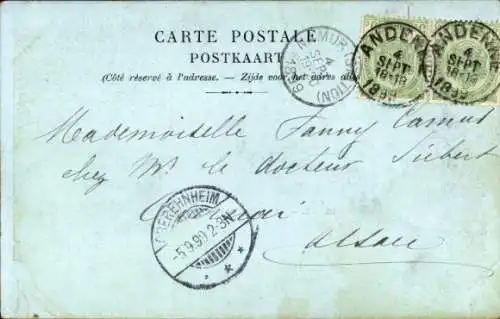 CARTE POSTALE
POSTKAART
(Côté réservé à l'adresse. — Zijde voor het adres
NAMUR (STATION)
4 SEPT 1899
ANDENNE
4 SEPT 18-19 1899
ANDENNE
4 SEPT 18-19 1899
Mademoiselle Fanny Camus
chez Mr le docteur Siebert
OBEREHNHEIM
5.9.99. 2-3N
Alsace